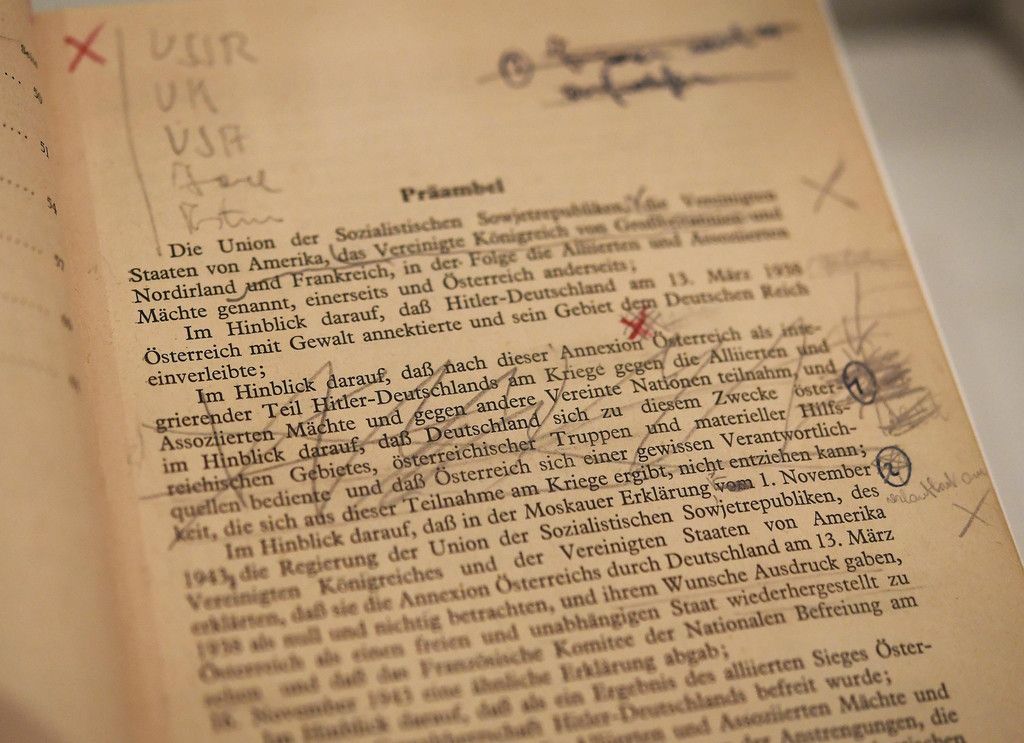 USSR
UK
USA
Präambel
Die Union der Sozialistischen Sowjetrepubliken, die Vereinigten
Staaten von Amerika, das Vereinigte Königreich von Großbritannien und
Nordirland und Frankreich, in der Folge die Alliierten und Assoziierten
Mächte genannt, einerseits und Österreich anderseits;
Im Hinblick darauf, daß Hitler-Deutschland am 13. März 1938
Österreich mit Gewalt annektierte und sein Gebiet dem Deutschen Reich
einverleibte;
Im Hinblick darauf, daß nach dieser Annexion Österreich als inte-
grierender Teil Hitler-Deutschlands am Kriege gegen die Alliierten und
Assoziierten Mächte und gegen andere Vereinte Nationen teilnahm, und
im Hinblick darauf, daß Deutschland sich zu diesem Zwecke öster-
reichischen Gebietes, österreichischer Truppen und materieller Hilfs-
quellen bediente und daß Österreich sich einer gewissen Verantwortlich-
keit, die sich aus dieser Teilnahme am Kriege ergibt, nicht entziehen kann;
Im Hinblick darauf, daß in der Moskauer Erklärung vom 1. November
1943, die Regierung der Union der Sozialistischen Sowjetrepubliken, des
Vereinigten Königreiches und der Vereinigten Staaten von Amerika
erklärten, daß sie die Annexion Österreichs durch Deutschland am 13. März
1938 als null und nichtig betrachten, und ihrem Wunsche Ausdruck gaben,
Österreich als einen freien und unabhängigen Staat wiederhergestellt zu
sehen und daß das Französische Komitee der Nationalen Befreiung am
16. November 1943 eine ähnliche Erklärung abgab;
Im Hinblick darauf, daß als ein Ergebnis des alliierten Sieges Öster-
Hitler-Deutschlands befreit wurde;
Alliierten und Assoziierten Mächte und
der Anstrengungen, die
51
54
57